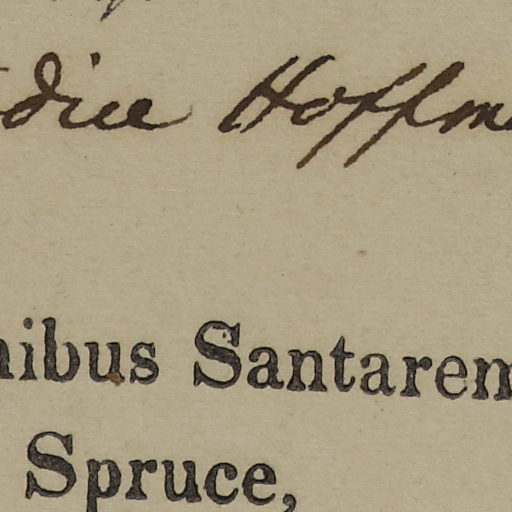 dice Hoffm
nibus Santarem
Spruce,